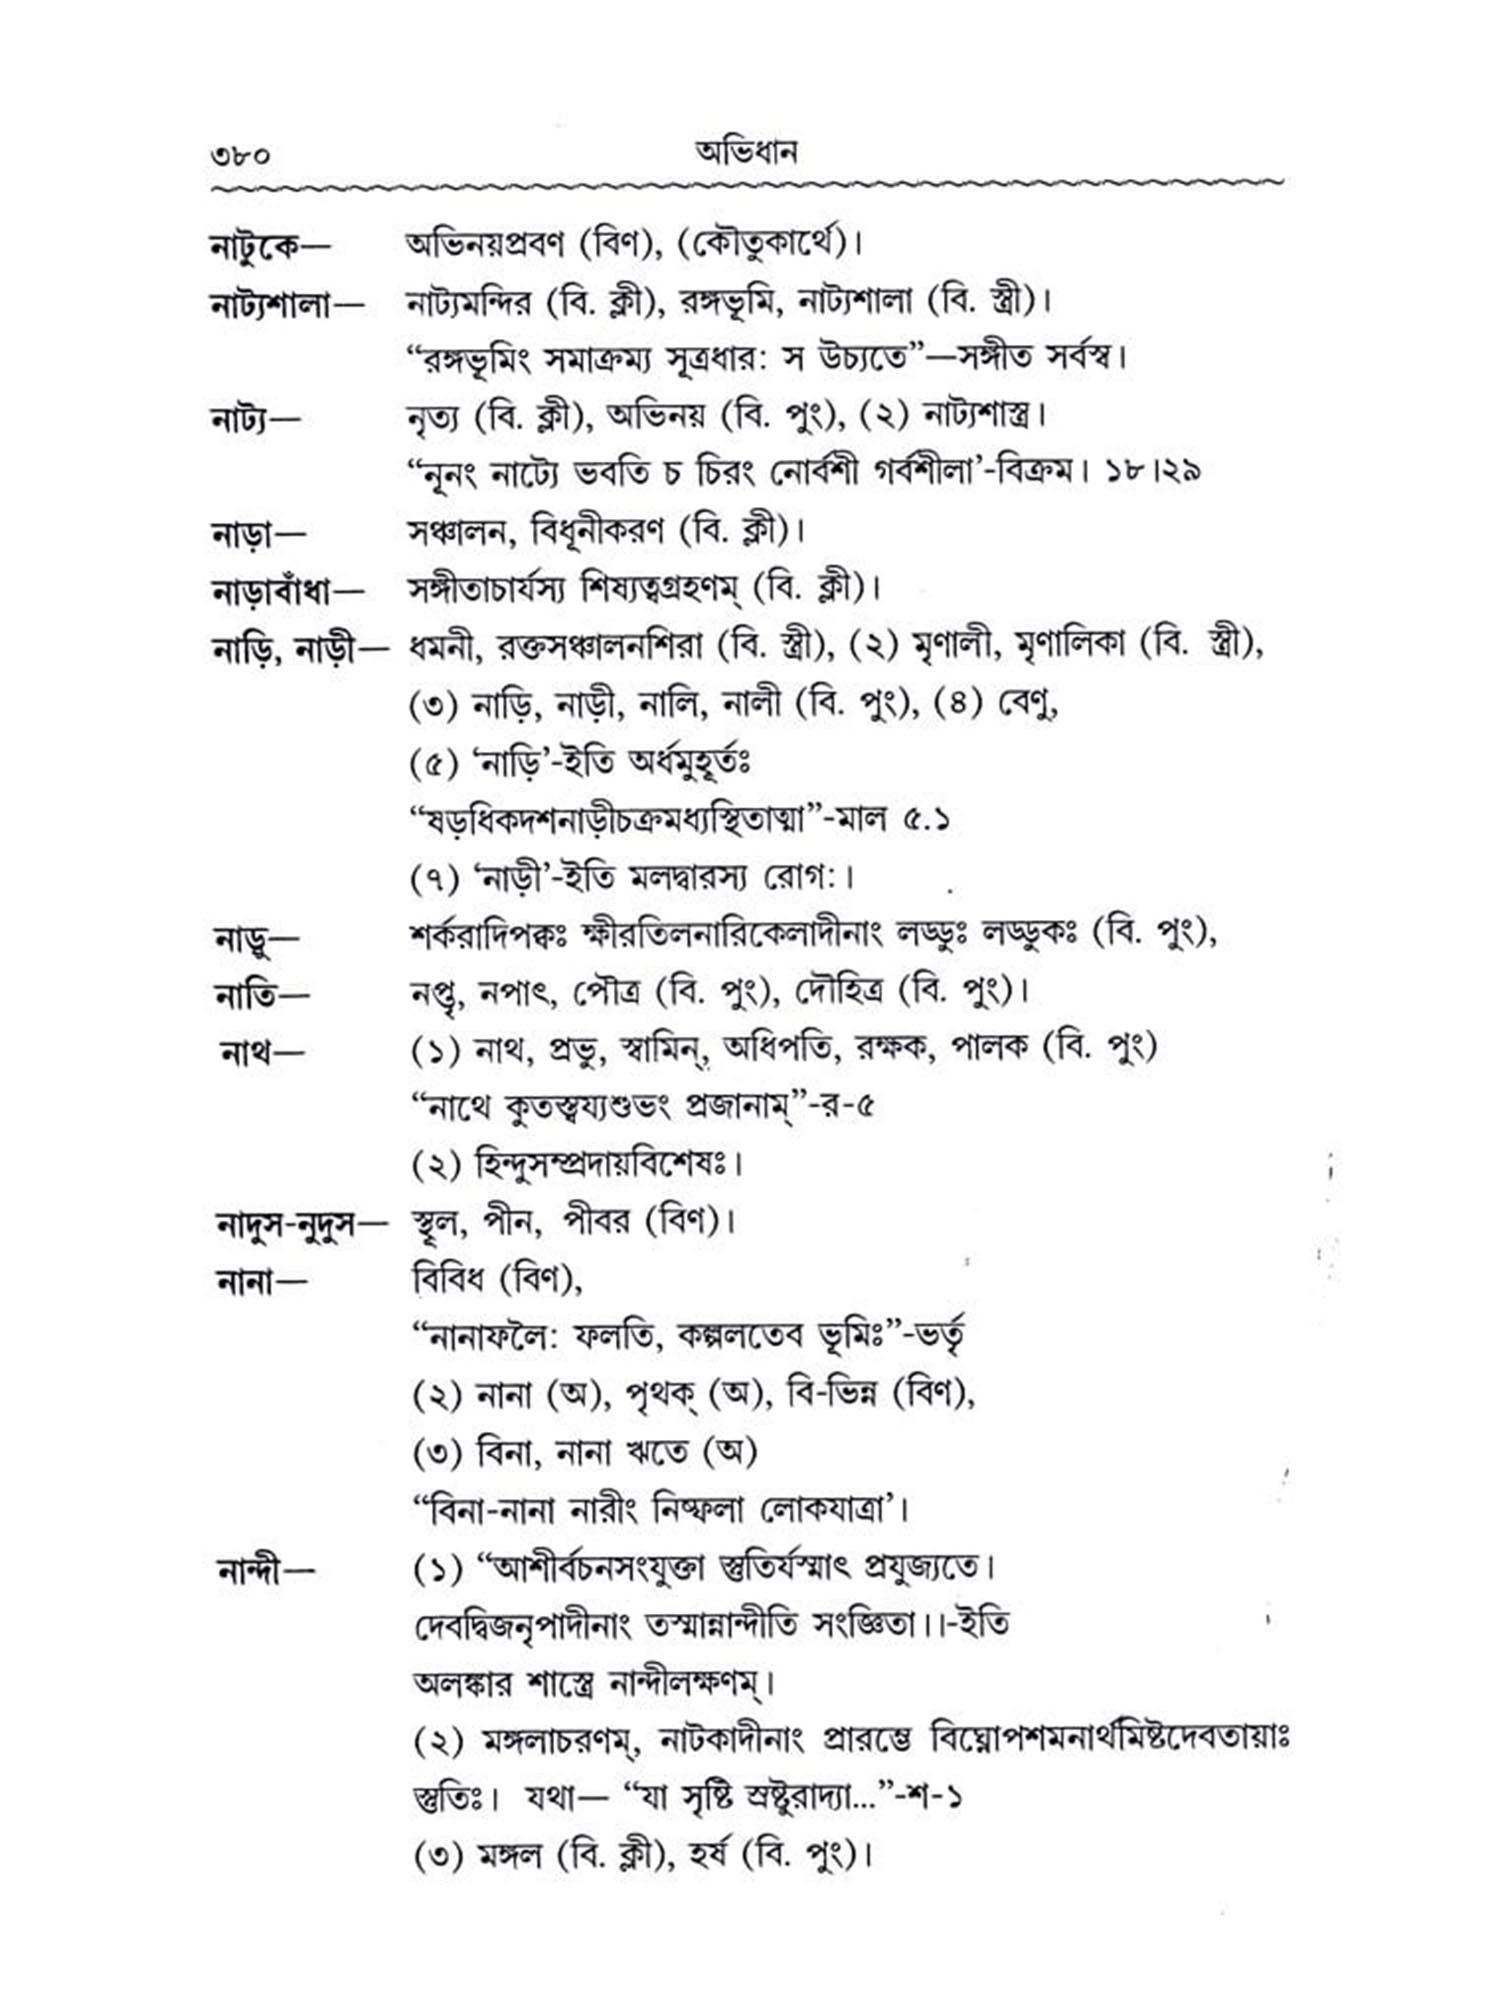 ৩৮০ অভিধান
নাটুকে— অভিনয়প্রবণ (বিণ), (কৌতুকার্থে)।
নাট্যশালা— নাট্যমন্দির (বি. ক্লী), রঙ্গভূমি, নাট্যশালা (বি. স্ত্রী)।
“রঙ্গভূমিং সমাক্রম্য সূত্রধার: স উচ্যতে”—সঙ্গীত সর্বস্ব।
নাট্য— নৃত্য (বি. ক্লী), অভিনয় (বি. পুং), (২) নাট্যশাস্ত্র।
“নূনং নাট্যে ভবতি চ চিরং নোর্বশী গর্বশীলা’-বিক্রম। ১৮।২৯
নাড়া— সঞ্চালন, বিধূনীকরণ (বি. ক্লী)।
নাড়াবাঁধা— সঙ্গীতাচার্যস্য শিষ্যত্বগ্রহণম্ (বি. ক্লী)।
নাড়ি, নাড়ী— ধমনী, রক্তসঞ্চালনশিরা (বি. স্ত্রী), (২) মৃণালী, মৃণালিকা (বি. স্ত্রী),
(৩) নাড়ি, নাড়ী, নালি, নালী (বি. পুং), (৪) বেণু,
(৫) ‘নাড়ি’-ইতি অর্ধমুহূর্তঃ
“ষড়ধিকদশনাড়ীচক্রমধ্যস্থিতাত্মা”-মাল ৫.১
(৭) ‘নাড়ী’-ইতি মলদ্বারস্য রোগ:।
নাড়ু— শর্করাদিপক্বঃ ক্ষীরতিলনারিকেলাদীনাং লড্ডুঃ লড্ডুকঃ (বি. পুং),
নাতি— নপ্তৃ, নপাৎ, পৌত্র (বি. পুং), দৌহিত্র (বি. পুং)।
নাথ— (১) নাথ, প্রভু, স্বামিন্, অধিপতি, রক্ষক, পালক (বি. পুং)
“নাথে কুতস্ত্বয্যশুভং প্রজানাম্”-র-৫
(২) হিন্দুসম্প্রদায়বিশেষঃ।
নাদুস-নুদুস— স্থূল, পীন, পীবর (বিণ)।
নানা— বিবিধ (বিণ),
“নানাফলৈ: ফলতি, কল্পলতেব ভূমিঃ”-ভর্তৃ
(২) নানা (অ), পৃথক্ (অ), বি-ভিন্ন (বিণ),
(৩) বিনা, নানা ঋতে (অ)
“বিনা-নানা নারীং নিষ্ফলা লোকযাত্রা’।
নান্দী— (১) “আশীর্বচনসংযুক্তা স্তুতির্যস্মাৎ প্রযুজ্যতে।
দেবদ্বিজনৃপাদীনাং তস্মান্নান্দীতি সংজ্ঞিতা।।-ইতি
অলঙ্কার শাস্ত্রে নান্দীলক্ষণম্।
(২) মঙ্গলাচরণম্, নাটকাদীনাং প্রারম্ভে বিঘ্নোপশমনার্থমিষ্টদেবতায়াঃ
স্তুতিঃ। যথা— “যা সৃষ্টি স্রষ্টুরাদ্যা...”-শ-১
(৩) মঙ্গল (বি. ক্লী), হর্ষ (বি. পুং)।